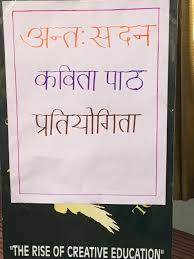 अन्तः सदन
कविता पाठ
प्रतियोगिता
"THE RISE OF CREATIVE EDUCATION"